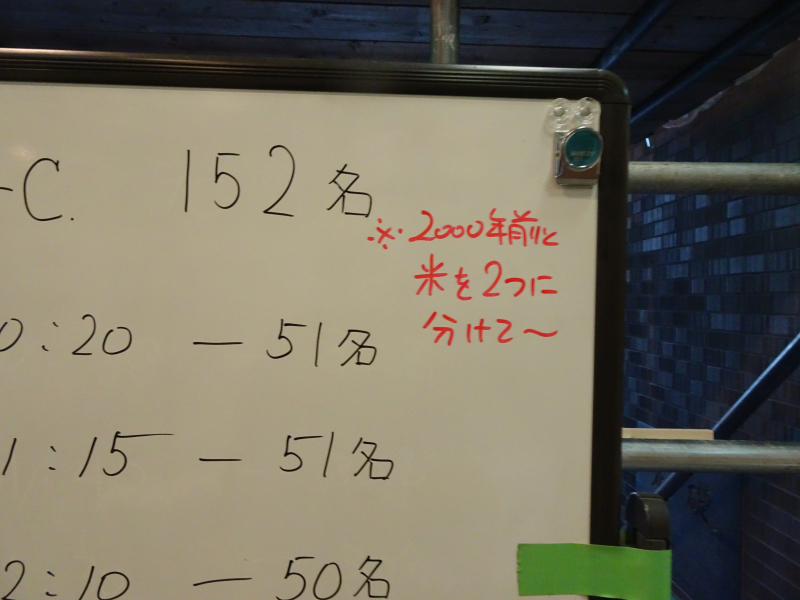 -C. 152名
※2000年前と
米を2つに
分けて〜
0:20 — 51名
1:15 — 51名
2:10 — 50名